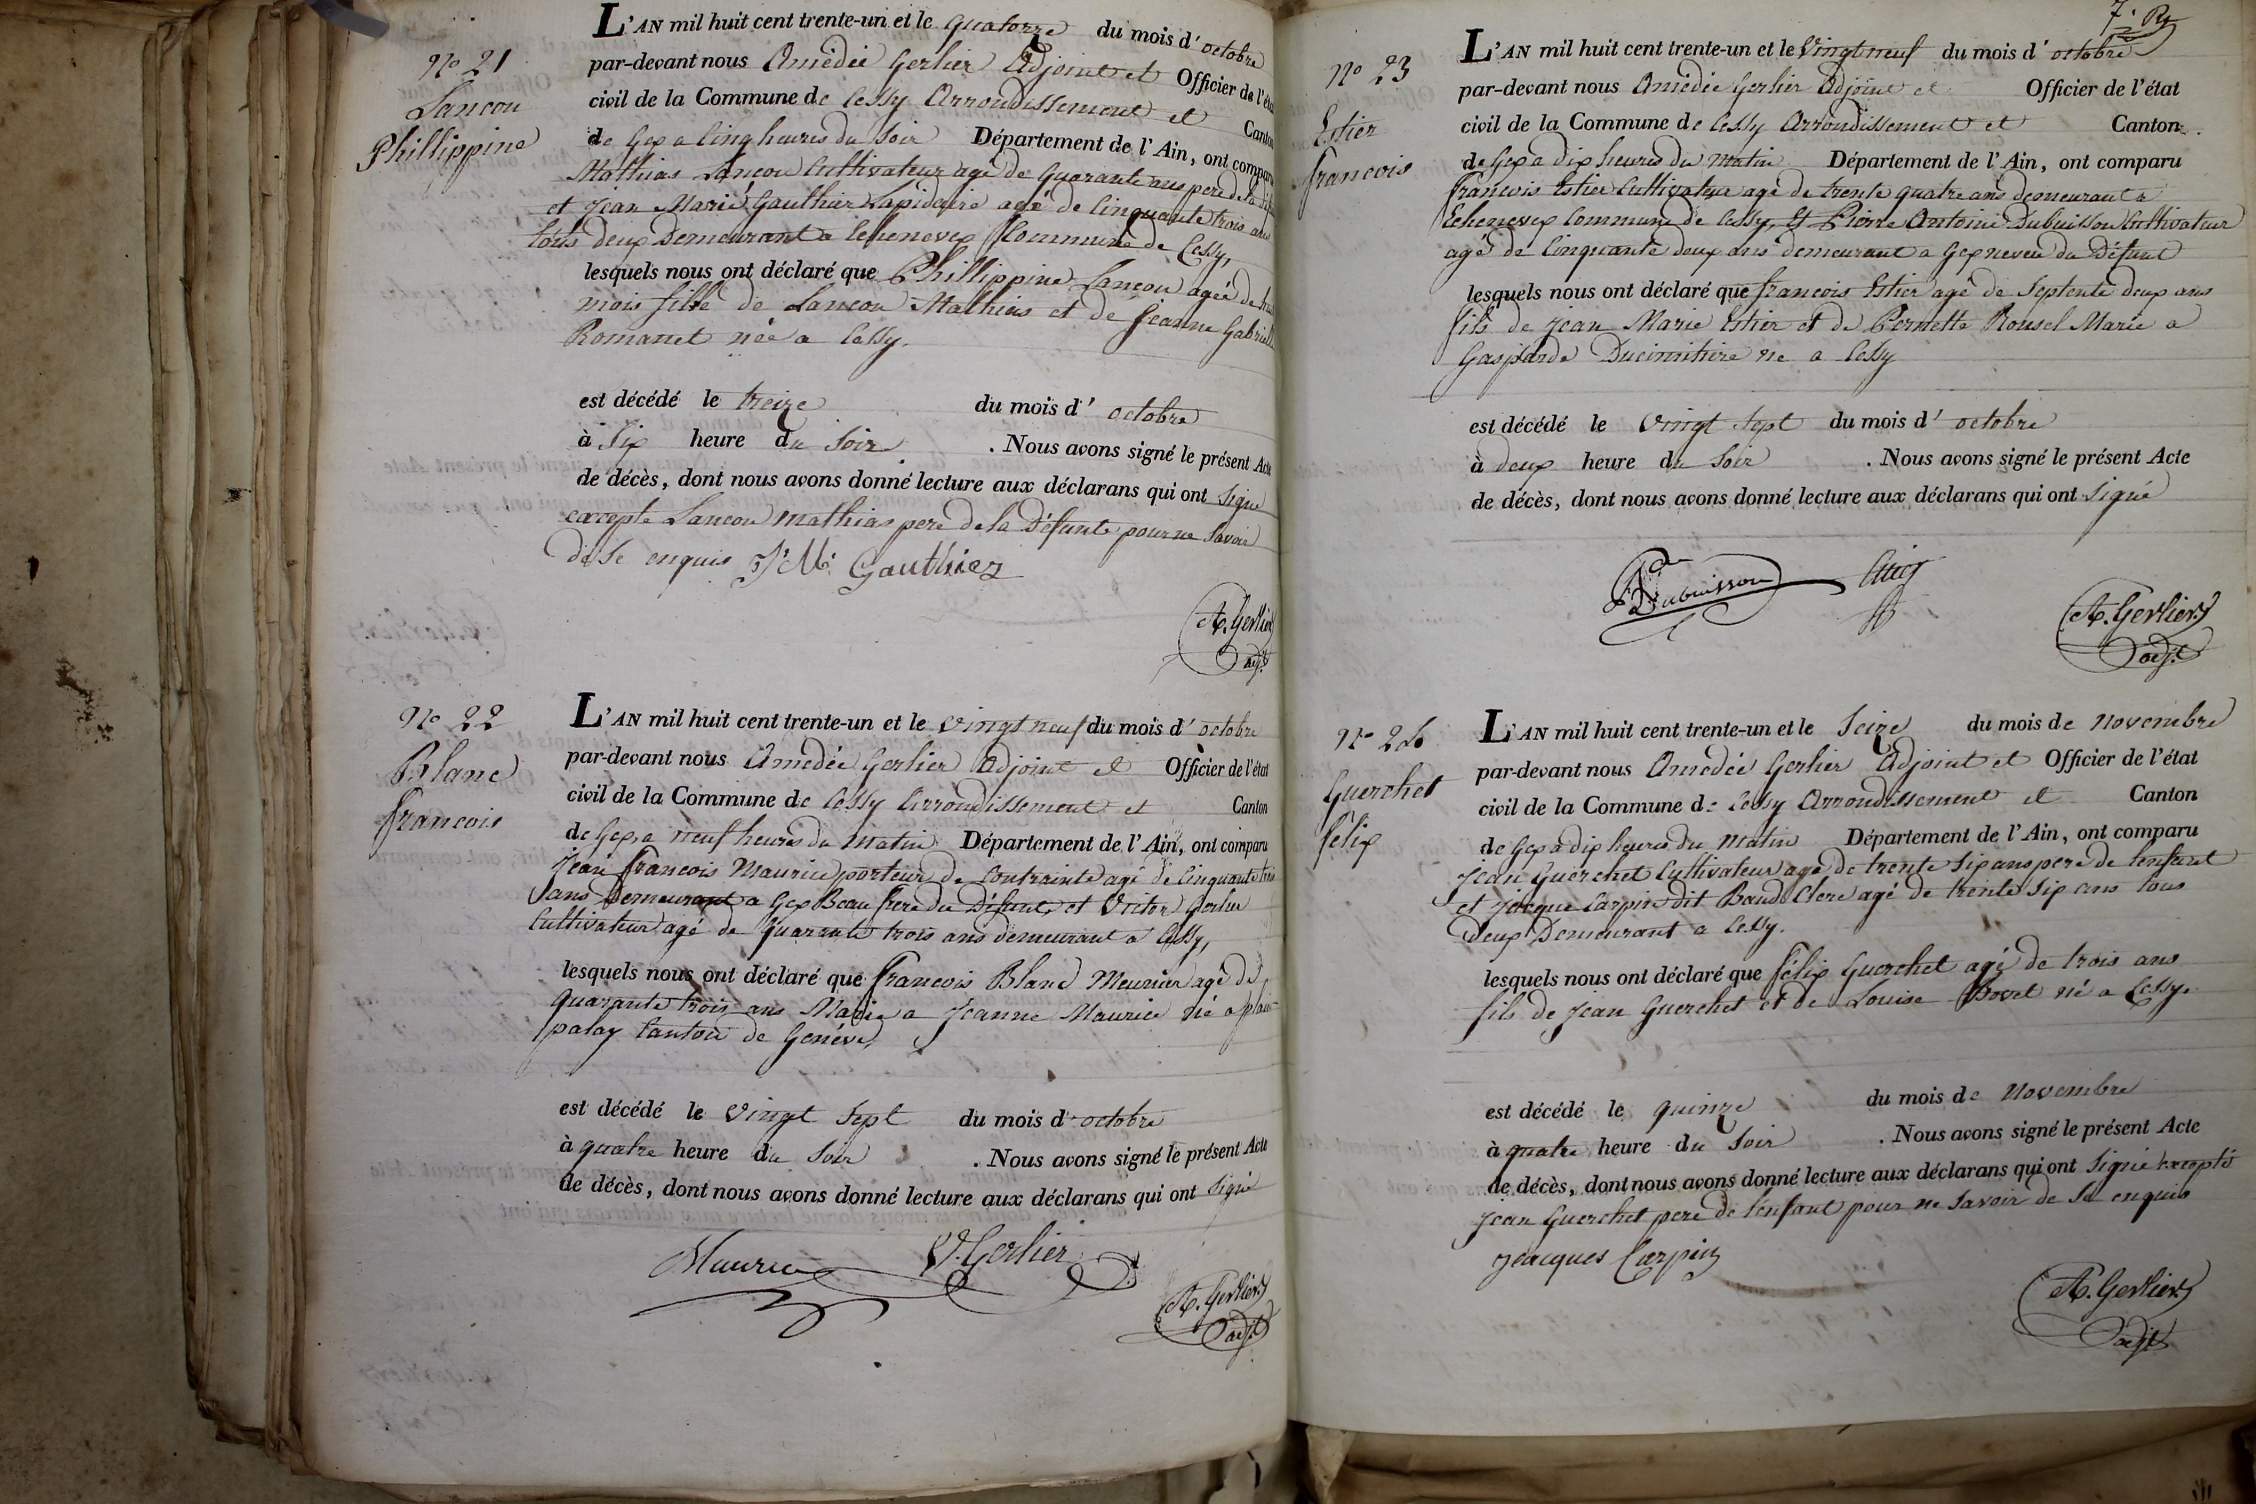 No 21
Lancon
Phillippine
L'AN mil huit cent trente-un et le quatorze du mois d'octobre
par-devant nous Amédée Gerlier Adjoint et Officier de l'état
civil de la Commune de Cessy Arrondissement et Canton
de Gex a Cinq heures du Soir Département de l'Ain, ont comparu
Mathias Lancon Cultivateur agé de Quarante ans pere de la
et Jean Marie Gauthier Lapidaire agé de Cinquante trois ans
tous deux Demeurant a Echenevex Commune de Cessy,
lesquels nous ont déclaré que Phillippine Lancon agée de
mois fille de Lancon Mathias et de Jeanne Gabrielle
Romanet née a Cessy.
est décédé le treize du mois d'octobre
à Six heure du Soir. Nous avons signé le présent Acte
de décès, dont nous avons donné lecture aux déclarans qui ont Signé
excepte Lancon Mathias pere de la Défunte pour ne Savoir
de Ce enquis J. M. Gauthier
A. Gerlier
adjt
No 22
Blanc
francois
L'AN mil huit cent trente-un et le vingt neuf du mois d'octobre
par-devant nous Amedée Gerlier Adjoint et Officier de l'état
civil de la Commune de Cessy Arrondissement et Canton
de Gex a neuf heures du Matin Département de l'Ain, ont comparu
Jean francois Maurice porteur de Contrainte agé de Cinquante trois
ans Demeurant a Gex Beau frere du Défunt, et Victor Gerlier
Cultivateur agé de Quarante trois ans demeurant a Cessy,
lesquels nous ont déclaré que francois Blanc Meunier agé de
Quarante trois ans Marie a Jeanne Maurice né a plain
palay Canton de Genéve,
est décédé le vingt Sept du mois d'octobre
à quatre heure du Soir. Nous avons signé le présent Acte
de décès, dont nous avons donné lecture aux déclarans qui ont Signé
Maurice V. Gerlier
A. Gerlier
adjt
7. Rt
No 23
Estier
francois
L'AN mil huit cent trente-un et le Vingt neuf du mois d'octobre
par-devant nous Amédée Gerlier Adjoint et Officier de l'état
civil de la Commune de Cessy Arrondissement et Canton
de Gex a dix heures du Matin Département de l'Ain, ont comparu
francois Estier Cultivateur agé de trente quatre ans demeurant a
Echenevex Commune de Cessy, et Pierre Antoine Dubuisson Cultivateur
agé de Cinquante deux ans demeurant a Gex neveu du Défunt
lesquels nous ont déclaré que francois Estier agé de Septente deux ans
fils de Jean Marie Estier et de Pernette Rousel Marie a
Gasparde Ducimitiere ne a Cessy
est décédé le vingt Sept du mois d'octobre
à deux heure du Soir. Nous avons signé le présent Acte
de décès, dont nous avons donné lecture aux déclarans qui ont Signé
Dubuisson
A. Gerlier
adjt
No 24
Guerchet
félix
L'AN mil huit cent trente-un et le Seize du mois de Novembre
par-devant nous Amedée Gerlier Adjoint et Officier de l'état
civil de la Commune de Cessy Arrondissement et Canton
de Gex a dix heures du Matin Département de l'Ain, ont comparu
Jean Guerchet Cultivateur agé de trente Six ans pere de lenfant
et Jacque Carpin dit Baud Clerc agé de trente Six ans tous
deux Demeurant a Cessy.
lesquels nous ont déclaré que félix Guerchet agé de trois ans
fils de Jean Guerchet et de Louise Bovet né a Cessy.
est décédé le quinze du mois de Novembre
à quatre heure du Soir. Nous avons signé le présent Acte
de décès, dont nous avons donné lecture aux déclarans qui ont Signé excepté
Jean Guerchet pere de lenfant pour ne Savoir de Ce enquis
Jeacques Carpin
A. Gerlier
adjt